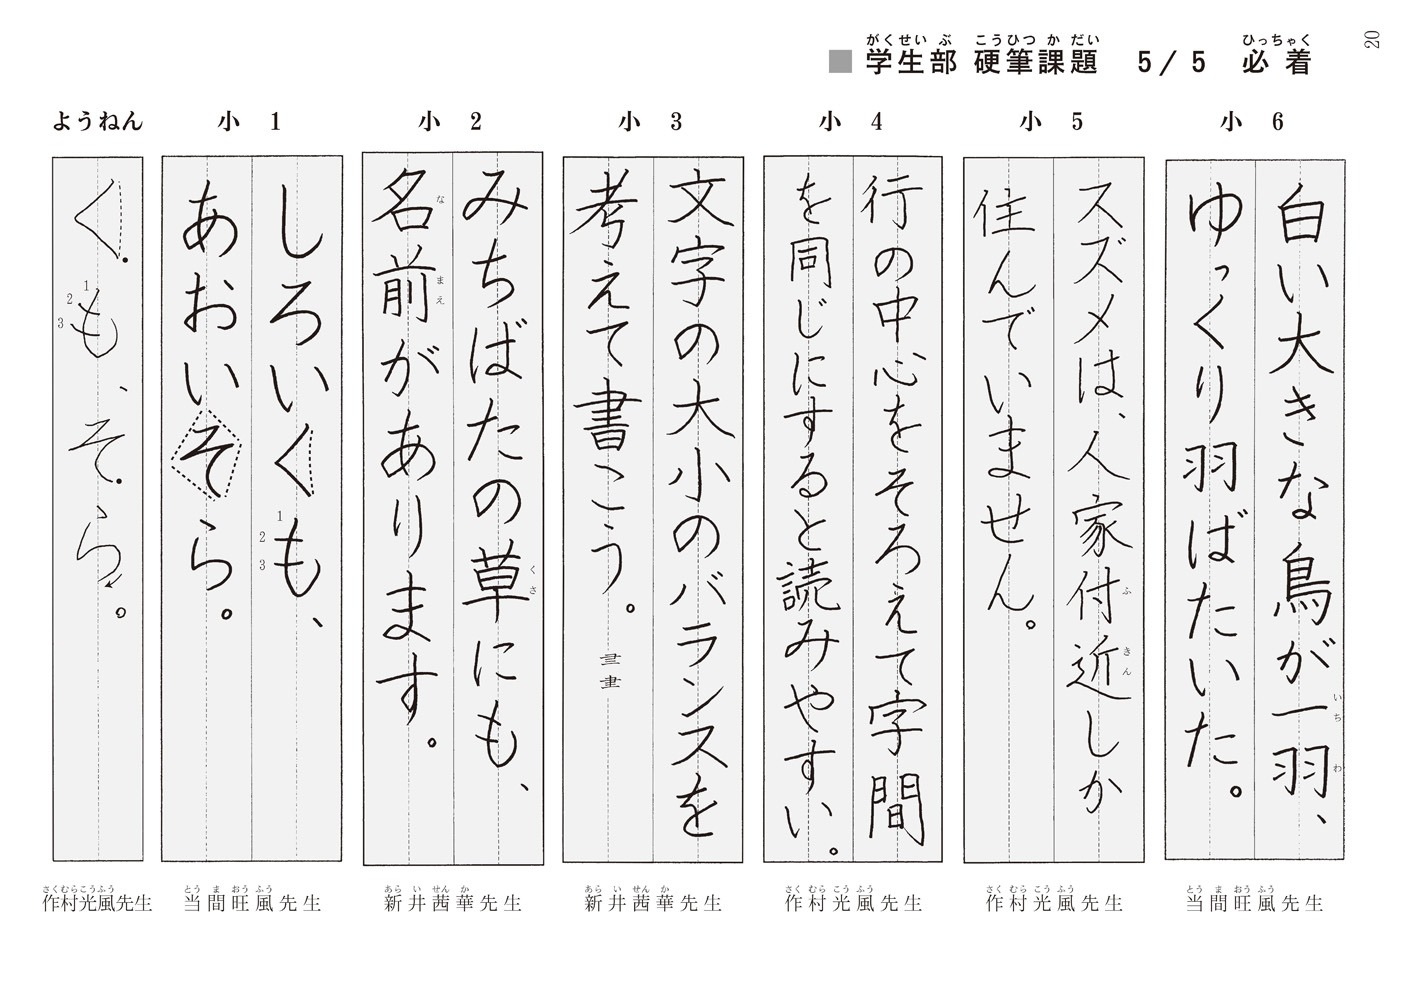 20
■ 学生部 硬筆課題 5/5 必着
がくせい ぶ こうひつ か だい ひっちゃく
小 6
白い大きな鳥が一羽、
いち わ
ゆっくり羽ばたいた。
当間旺風先生
とう ま おう ふう
小 5
スズメは、人家付近しか
ふ きん
住んでいません。
作村光風先生
さく むら こう ふう
小 4
行の中心をそろえて字間
を同じにすると読みやすい。
作村光風先生
さく むら こう ふう
小 3
文字の大小のバランスを
考えて書こう。
新井茜華先生
あら い せん か
小 2
みちばたの草にも、
くさ
名前があります。
な まえ
新井茜華先生
あら い せん か
小 1
しろいくも、
1
2
3
あおいそら。
当間旺風先生
とう ま おう ふう
ようねん
くも、そら。
1
2
3
作村光風先生
さくむらこうふう